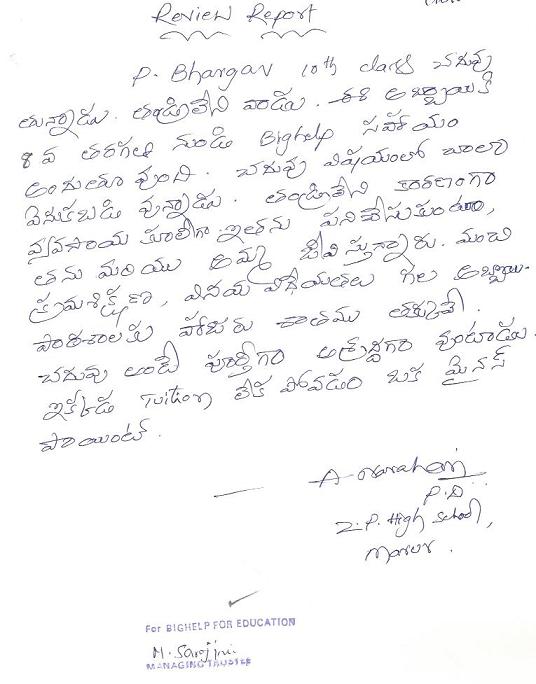 Review Report
P. Bhargav 10th class చదువు
తున్నాడు. తండ్రిలేని వాడు. ఈ అబ్బాయికి
8 వ తరగతి నుండి Bighelp సహాయం
అందుతూ వుంది. చదువు విషయంలో చాలా
వెనుకబడి వున్నాడు. తండ్రిలేని కారణంగా
వ్యవసాయ కూలీగా ఇతను పనిచేసుకుంటూ,
తను మరియు అమ్మ జీవిస్తున్నారు. మంచి
క్రమశిక్షణా, వినయ విధేయతలు గల అబ్బాయి.
పాఠశాలకు హాజరు శాతము తక్కువే.
చదువు అంటే పూర్తిగా అశ్రద్ధగా వుంటాడు.
ఇక్కడ Tuition లేక పోవడం ఒక మైనస్
పాయింట్.
P.D
Z.P. High School,
Marur.
For BIGHELP FOR EDUCATION
M. Sarojini
MANAGING TRUSTEE